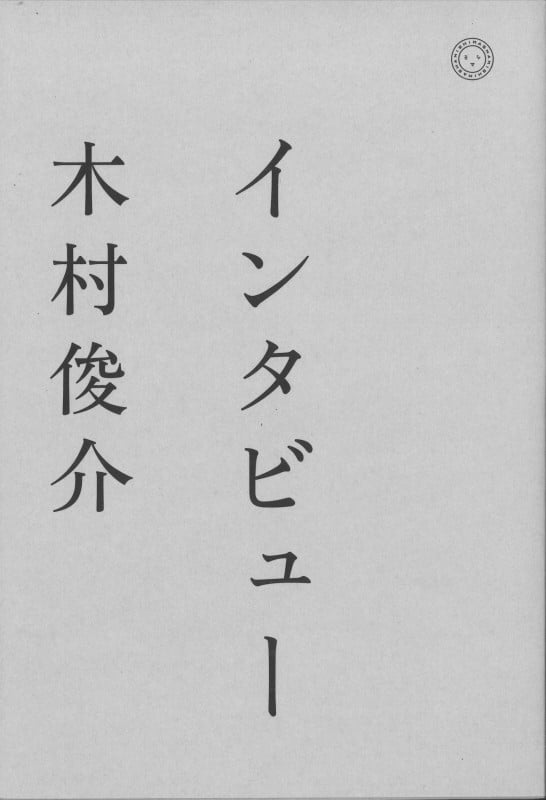 インタビュー
木村俊介